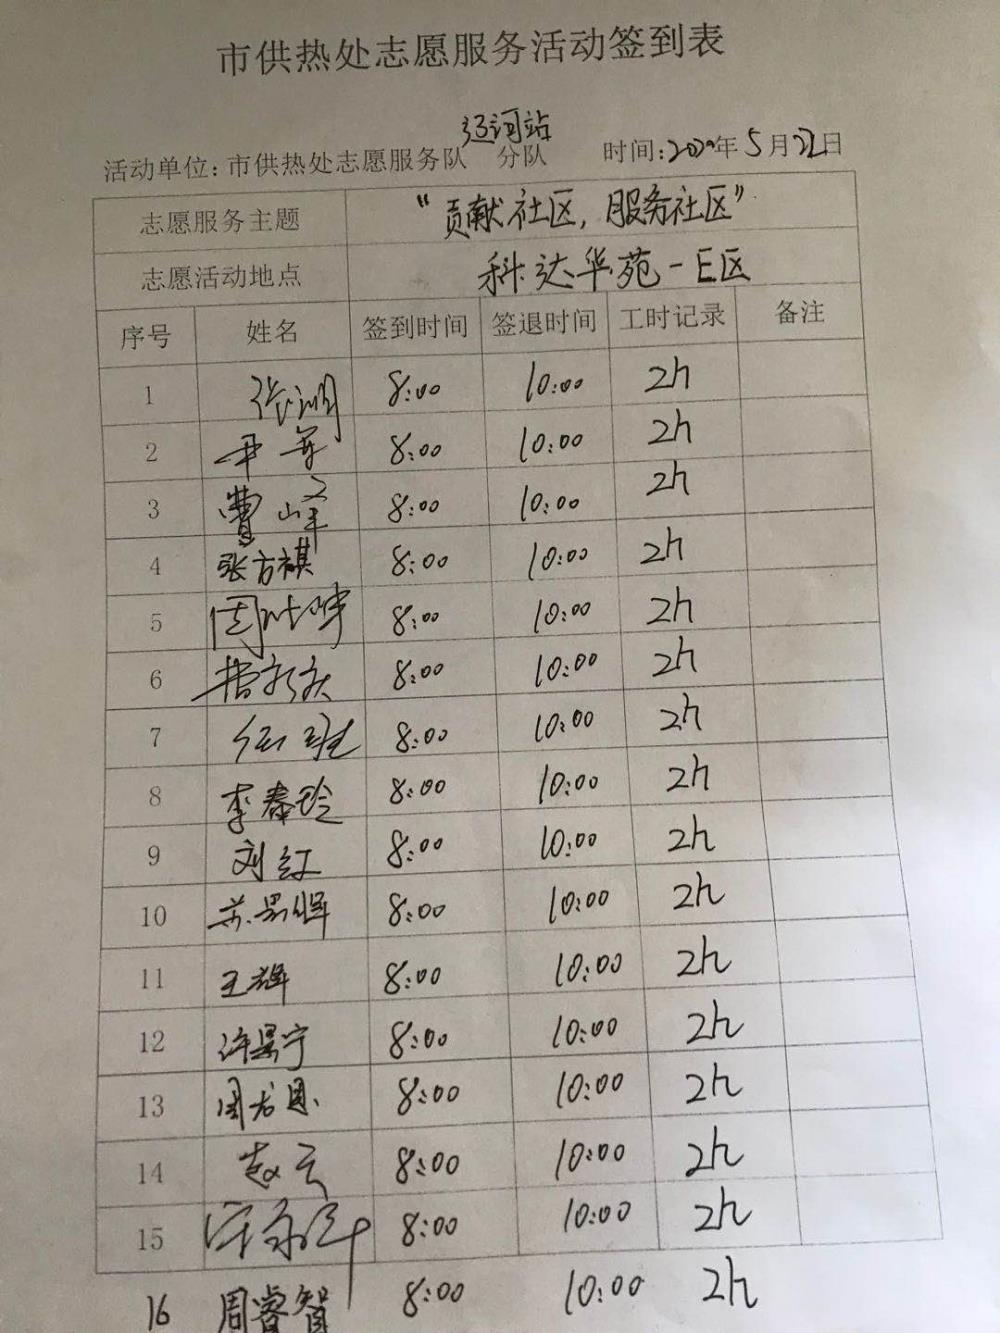 市供热处志愿服务活动签到表
辽河站
活动单位:市供热处志愿服务队 分队 时间:2020年5月22日
志愿服务主题 “贡献社区,服务社区”
志愿活动地点 科达华苑-E区
序号 姓名 签到时间 签退时间 工时记录 备注
1 8:00 10:00 2h
2 8:00 10:00 2h
3 曹峰 8:00 10:00 2h
4 张方祺 8:00 10:00 2h
5 周 8:00 10:00 2h
6 8:00 10:00 2h
7 8:00 10:00 2h
8 李春玲 8:00 10:00 2h
9 刘红 8:00 10:00 2h
10 苏景辉 8:00 10:00 2h
11 王辉 8:00 10:00 2h
12 许景宁 8:00 10:00 2h
13 周 8:00 10:00 2h
14 赵云 8:00 10:00 2h
15 8:00 10:00 2h
16 周睿智 8:00 10:00 2h